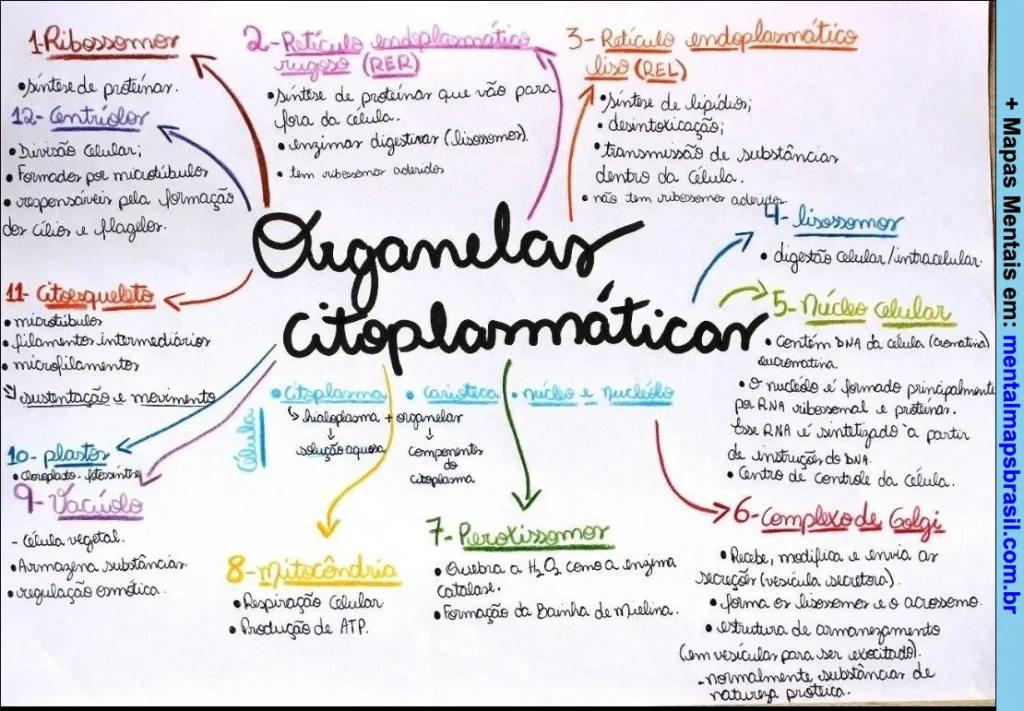 1-Ribossomos
• síntese de proteínas.
2- Retículo endoplasmático
rugoso (RER)
• síntese de proteínas que vão para
fora da célula.
• enzimas digestivas (lisossomos).
• tem ribossomos aderidos
3- Retículo endoplasmático
liso (REL)
• síntese de lipídios;
• desintoxicação;
• transmissão de substâncias
dentro da célula.
• não tem ribossomos aderidos
12- Centríolos
• Divisão Celular;
• Formados por microtúbulos
• responsáveis pela formação
dos cílios e flagelos.
Organelas
citoplasmáticas
4- lisossomos
• digestão celular/intracelular.
5- Núcleo Celular
• Contém DNA da célula (cromatina)
eucromatina.
• O nucléolo é formado principalmente
por RNA ribossomal e proteínas.
Esse RNA é sintetizado à partir
de instruções do DNA.
• Centro de controle da célula.
11- Citoesqueleto
• microtúbulos
• filamentos intermediários
• microfilamentos
↳ sustentação e movimento
Célula
• citoplasma • carioteca • núcleo e nucléolo
↳ hialoplasma + organelas
↓ ↓
solução aquosa componentes
do
citoplasma
10- plastos
• Cloroplasto - fotossíntese
9- Vacúolo
- Célula vegetal.
• Armazena substâncias
• regulação osmótica.
8- Mitocôndria
• Respiração Celular
• Produção de ATP.
7- Peroxissomos
• Quebra a H₂O₂ com a enzima
catalase.
• Formação da Bainha de Mielina.
6- Complexo de Golgi
• Recebe, modifica e envia as
secreções (vesícula secretora).
• forma os lisossomos e o acrossomo.
• estrutura de armanezamento
(em vesículas para ser exocitado).
- normalmente substâncias de
natureza proteica.
+ Mapas Mentais em: mentalmapsbrasil.com.br